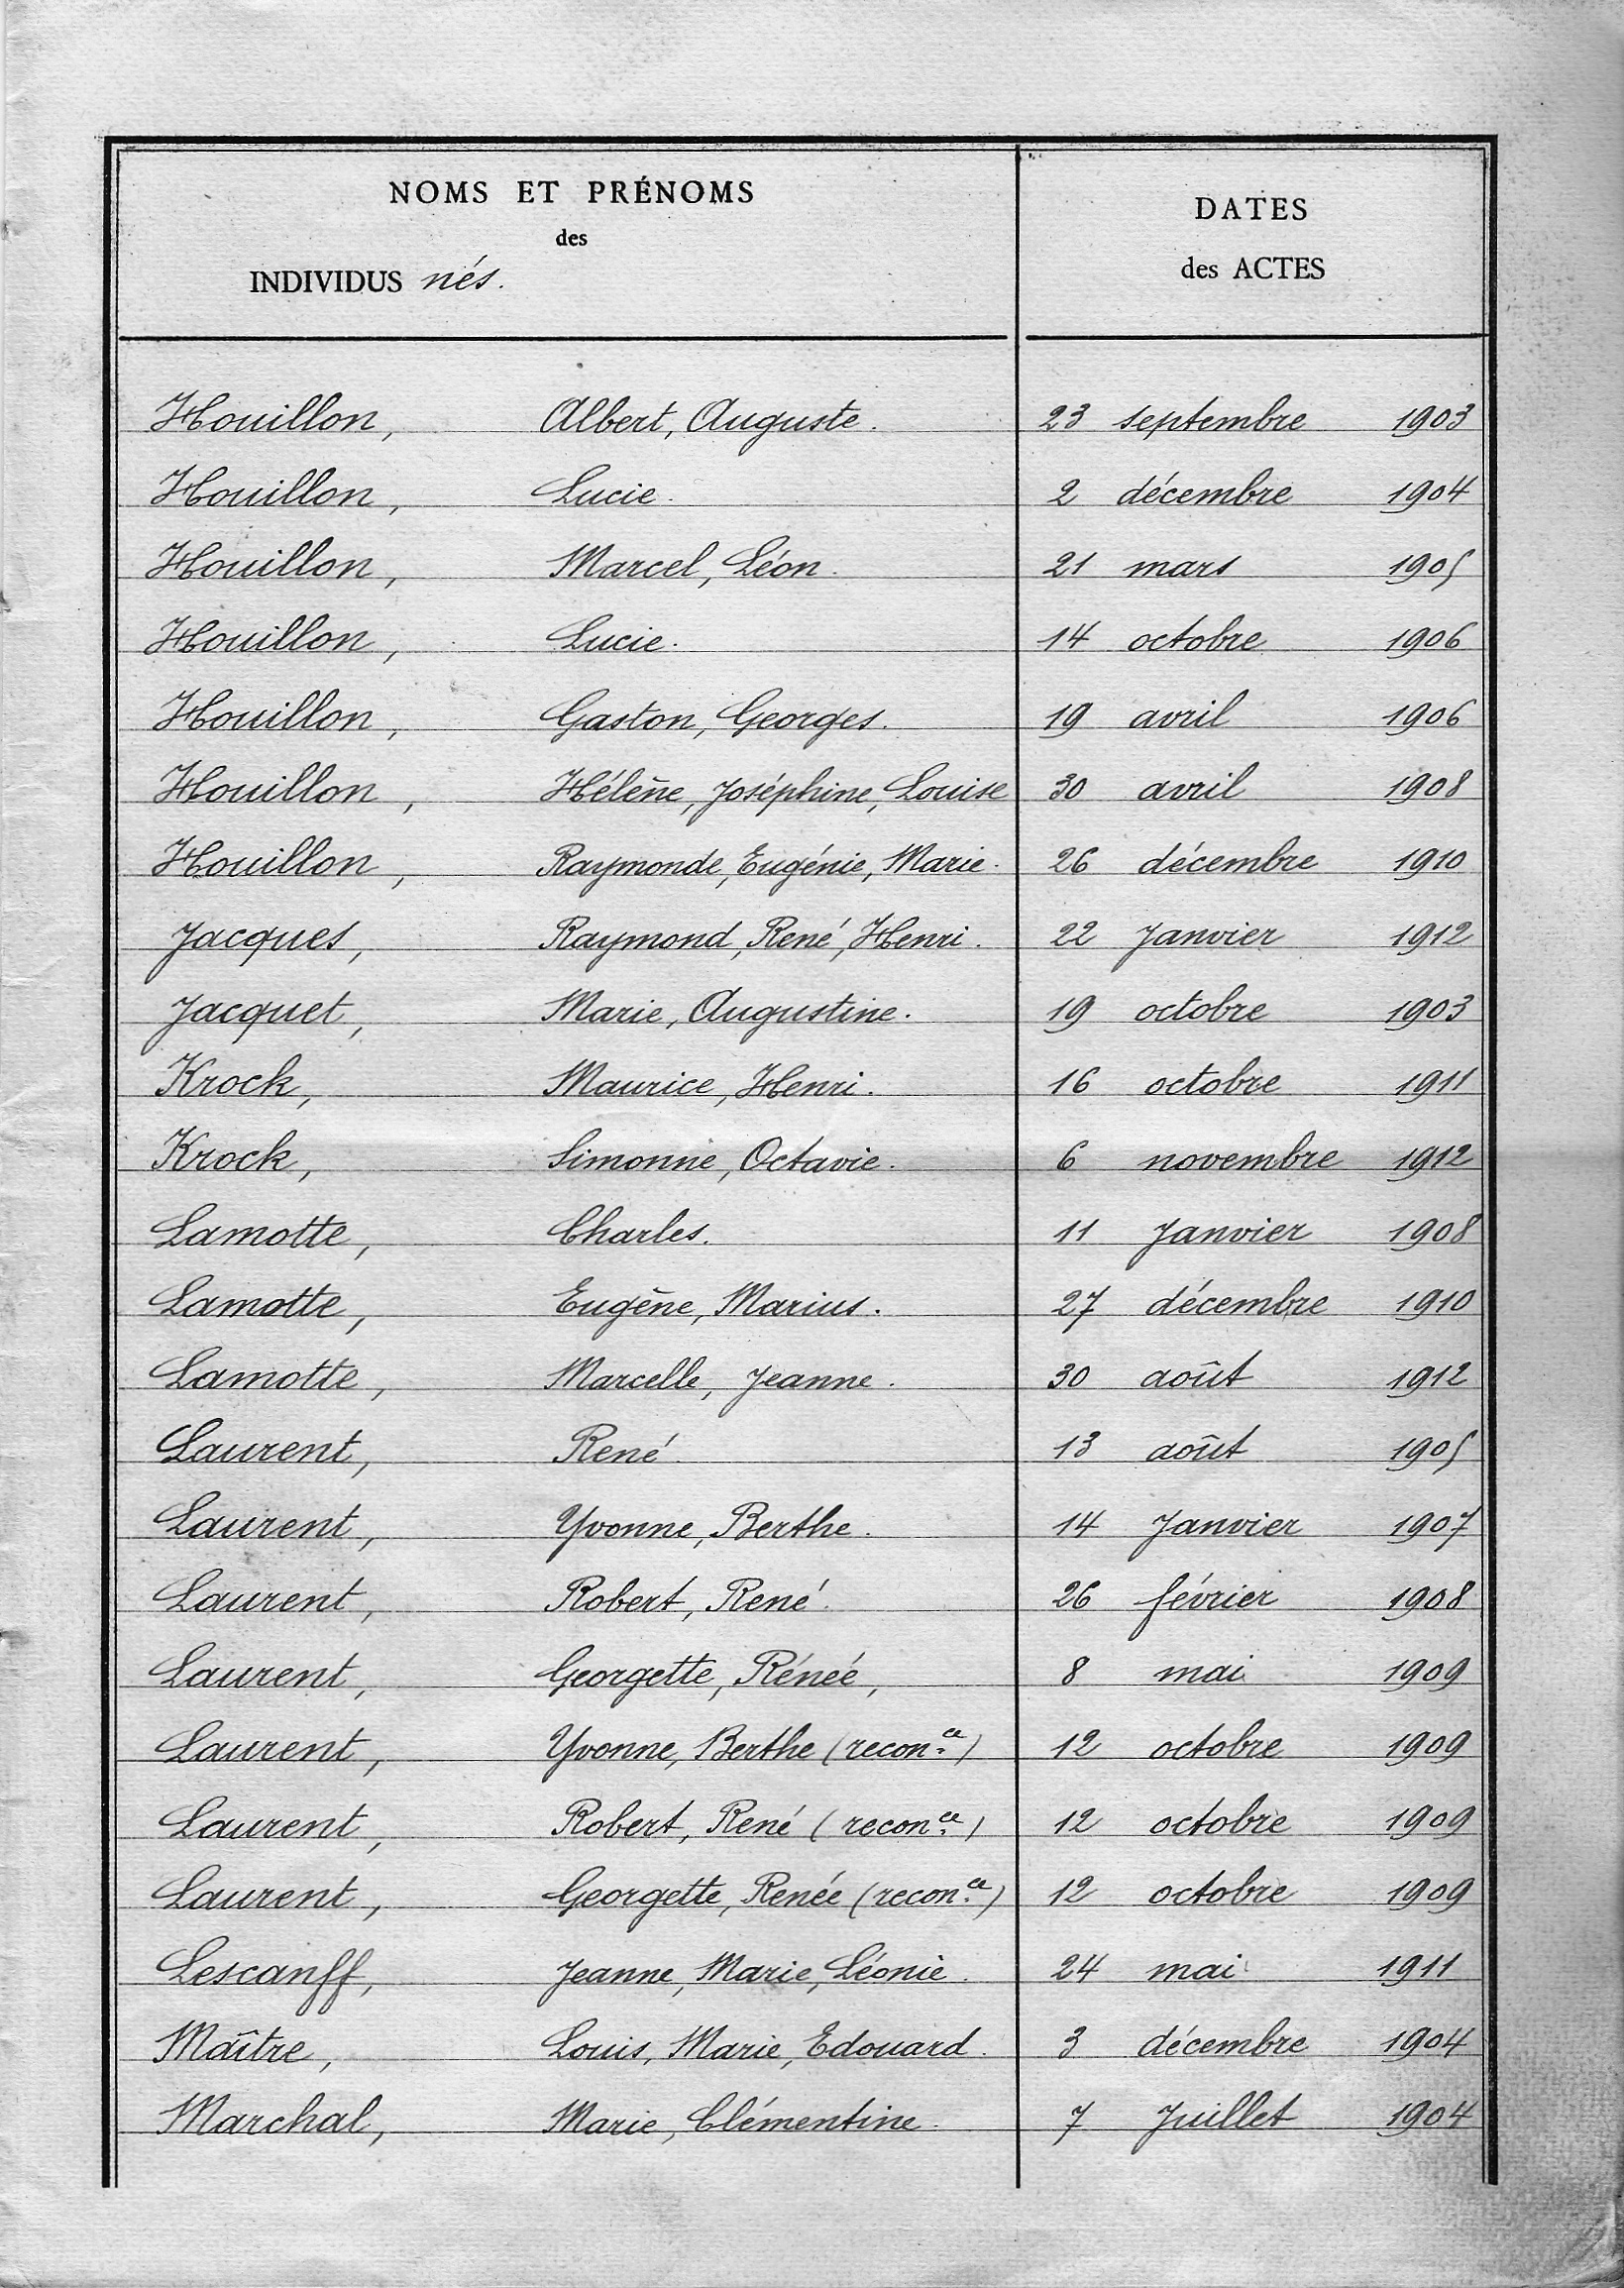 NOMS ET PRÉNOMS
des
INDIVIDUS nés.
DATES
des ACTES
Houillon, Albert, Auguste. 23 septembre 1903
Houillon, Lucie. 2 décembre 1904
Houillon, Marcel, Léon. 21 mars 1905
Houillon, Lucie. 14 octobre 1906
Houillon, Gaston, Georges. 19 avril 1906
Houillon, Hélène, Joséphine, Louise 30 avril 1908
Houillon, Raymonde, Eugénie, Marie. 26 décembre 1910
Jacques, Raymond, René, Henri. 22 Janvier 1912
Jacquet, Marie, Augustine. 19 octobre 1903
Krock, Maurice, Henri. 16 octobre 1911
Krock, Simonne, Octavie. 6 novembre 1912
Lamotte, Charles. 11 Janvier 1908
Lamotte, Eugène, Marius. 27 décembre 1910
Lamotte, Marcelle, Jeanne. 30 août 1912
Laurent, René. 13 août 1905
Laurent, Yvonne, Berthe. 14 Janvier 1907
Laurent, Robert, René. 26 février 1908
Laurent, Georgette, Rénée, 8 mai 1909
Laurent, Yvonne, Berthe (recon.ce) 12 octobre 1909
Laurent, Robert, René (recon.ce) 12 octobre 1909
Laurent, Georgette, Renée (recon.ce) 12 octobre 1909
Lescanff, Jeanne, Marie, Léonie. 24 mai 1911
Maître, Louis, Marie, Edouard. 3 décembre 1904
Marchal, Marie, Clémentine. 7 Juillet 1904